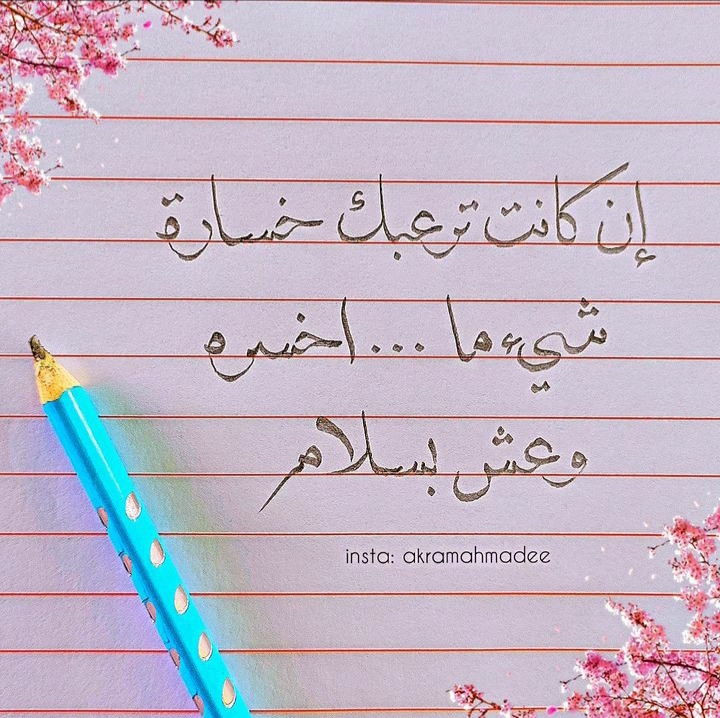 إن كانت ترعبك خسارة
شيء ما ... اخسره
وعش بسلام
insta: akramahmadee